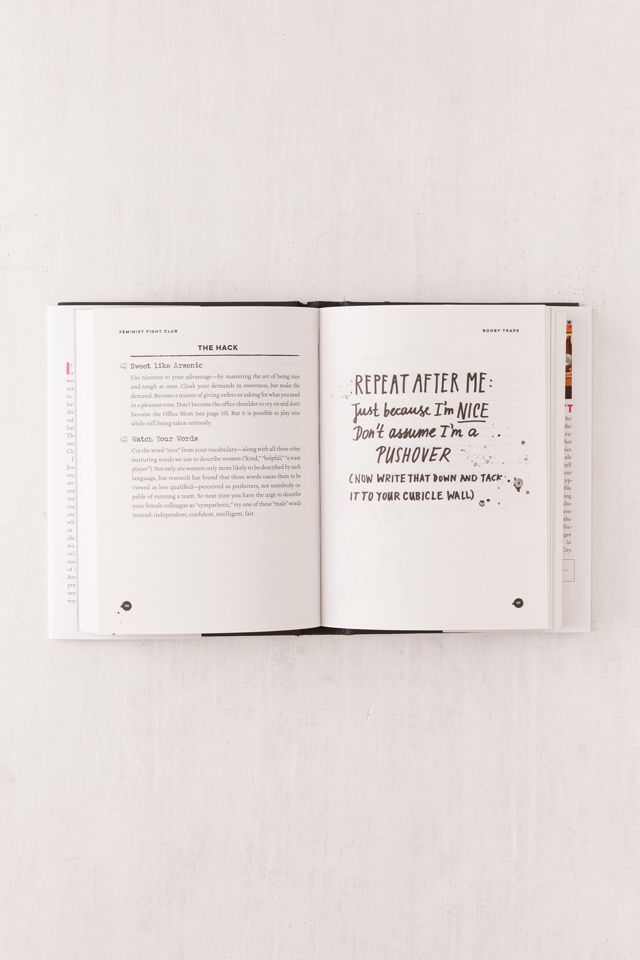 FEMINIST FIGHT CLUB
THE HACK
Sweet like Arsenic
Use niceness to your advantage—by mastering the art of being nice
and tough at once. Cloak your demands in sweetness, but make the
demand. Become a master of giving orders or asking for what you need
in a pleasant tone. Don't become the office shoulder to cry on and don't
become the Office Mom (see page 55). But it is possible to play nice
while still being taken seriously.
Watch Your Words
Cut the word "nice" from your vocabulary—along with all those other
nurturing words we use to describe women ("kind," "helpful," "a team
player"). Not only are women only more likely to be described by such
language, but research has found that those words cause them to be
viewed as less qualified—perceived as pushovers, not somebody ca
pable of running a team. So next time you have the urge to describe
your female colleague as "sympathetic," try one of these "male" words
instead: independent, confident, intelligent, fair.
BOOBY TRAPS
REPEAT AFTER ME:
Just because I'm NICE
Don't assume I'm a
PUSHOVER
(NOW WRITE THAT DOWN AND TACK
IT TO YOUR CUBICLE WALL)